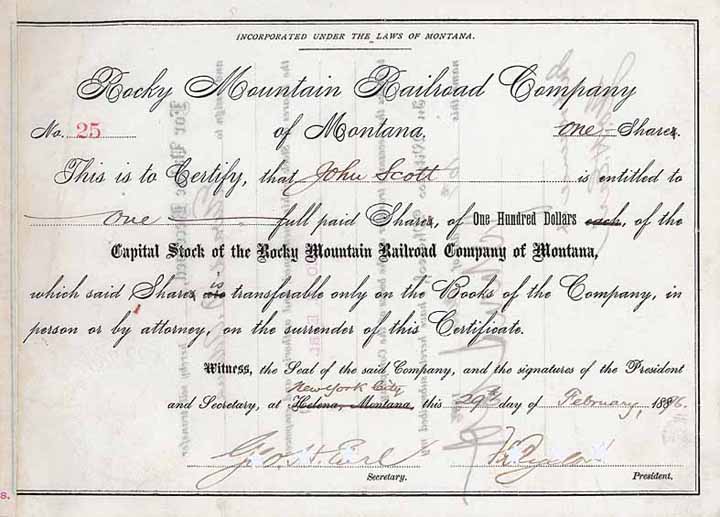 INCORPORATED UNDER THE LAWS OF MONTANA.
Rocky Mountain Railroad Company
No. 25 of Montana. one Share
This is to Certify, that John Scott is entitled to
one full paid Share, of One Hundred Dollars each, of the
Capital Stock of the Rocky Mountain Railroad Company of Montana,
which said Share is are transferable only on the Books of the Company, in
person or by attorney, on the surrender of this Certificate.
Witness, the Seal of the said Company, and the signatures of the President
New York City
and Secretary, at Helena, Montana, this 29th day of February, 1896.
Secretary. President.
S.